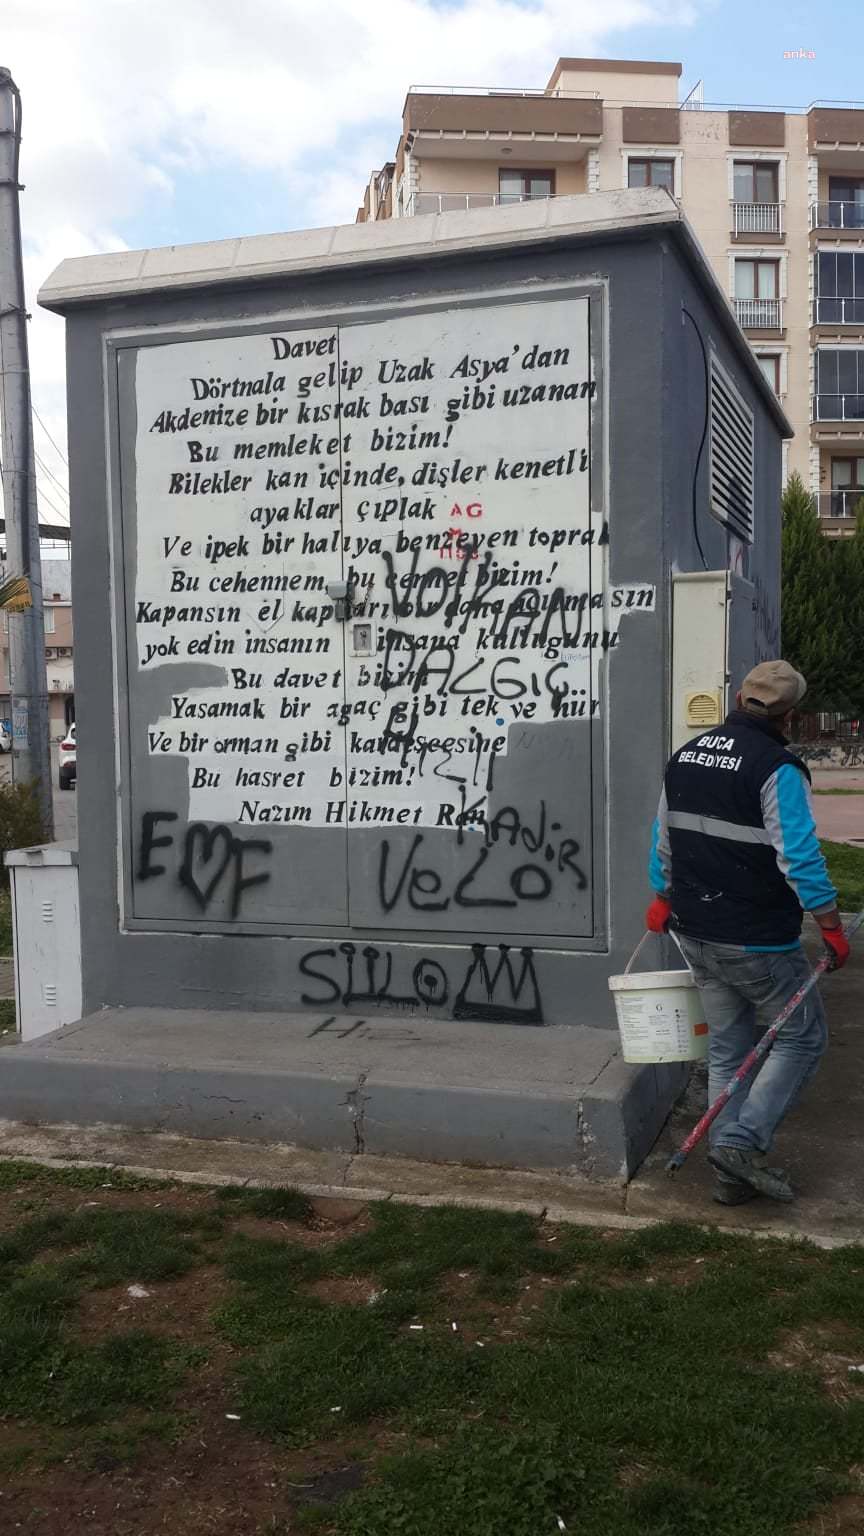 anka
Davet
Dörtnala gelip Uzak Asya'dan
Akdenize bir kısrak bası gibi uzanan
Bu memleket bizim!
Bilekler kan içinde, dişler kenetli
ayaklar çıplak
AG
Ve ipek bir halıya benzeyen toprak
Bu cehennem, bu cennet bizim!
Kapansın el kapıları bir daha açılmasın
yok edin insanın insana kulluğunu
Bu davet bizim
Yasamak bir agaç gibi tek ve hür
Ve bir orman gibi kardeşcesine
Bu hasret bizim!
Nazım Hikmet Ran
VOLKAN
DALGIÇ
KADiR
E F
VeLO
SÜLO
HIZ
BUCA
BELEDİYESİ